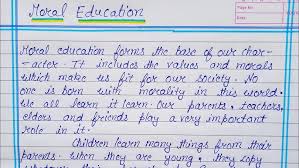 Moral Education
Moral education forms the base of our char-
-acter. It includes the values and morals
which make us fit for our society. No
one is born with morality in this world.
We all learn it. Our parents, teachers,
elders and friends play a very important
role in it.
Children learn many things from their
parents. When they are young, they copy